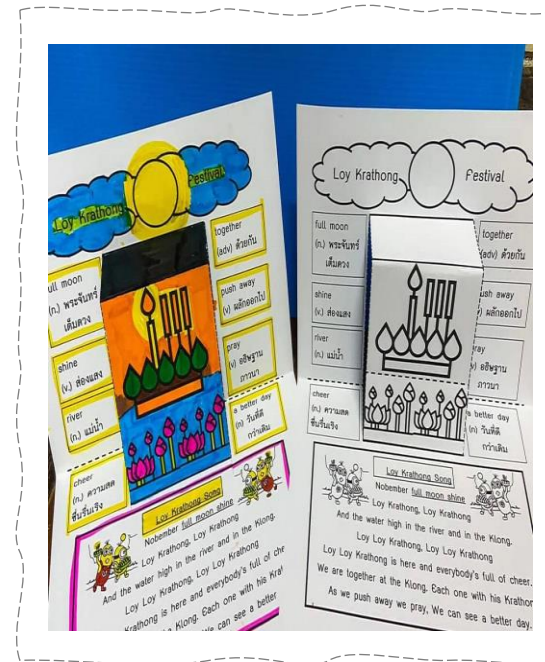 Loy Krathong Festival
full moon
(n.) พระจันทร์
เต็มดวง
shine
(v.) ส่องแสง
river
(n.) แม่น้ำ
cheer
(n.) ความสด
ชื่นรื่นเริง
together
(adv) ด้วยกัน
push away
(v) ผลักออกไป
pray
(v) อธิษฐาน
ภาวนา
a better day
(n) วันที่ดี
กว่าเดิม
Loy Krathong Song
Nobember full moon shine
Loy Krathong, Loy Krathong
And the water high in the river and in the Klong,
Loy Loy Krathong, Loy Loy Krathong
Krathong is here and everybody's full of
the Klong. Each one with his
We can see a better
Loy Krathong Festival
full moon
(n.) พระจันทร์
เต็มดวง
shine
(v.) ส่องแสง
river
(n.) แม่น้ำ
cheer
(n.) ความสด
ชื่นรื่นเริง
together
(adv) ด้วยกัน
push away
(v) ผลักออกไป
pray
(v) อธิษฐาน
ภาวนา
a better day
(n) วันที่ดี
กว่าเดิม
Loy Krathong Song
Nobember full moon shine
Loy Krathong, Loy Krathong
And the water high in the river and in the Klong,
Loy Loy Krathong, Loy Loy Krathong
Loy Loy Krathong is here and everybody's full of cheer,
We are together at the Klong. Each one with his
As we push away we pray, We can see a better day.